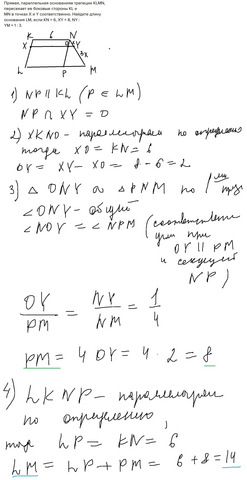 Прямая, параллельная основаниям трапеции KLMN,
пересекает ее боковые стороны KL и
MN в точках X и Y соответственно. Найдите длину
основания LM, если KN = 6, XY = 8, NY :
YM = 1 : 3.
K 6 N
X O Y
3x
L P M
1) NP ∥ KL (P ∈ LM)
NP ∩ XY = O
2) XKNO - параллелограм по определению
тогда XO = KN = 6
OY = XY - XO = 8 - 6 = 2
3) △ ONY ∾ △ PNM по
∠ONY - общий
∠NOY = ∠NPM (соответственные
при
OY ∥ PM
и секущей
NP)
OY/PM = NY/NM = 1/4
PM = 4 OY = 4 · 2 = 8
4) LKNP - параллелограм
по определению,
тогда LP = KN = 6
LM = LP + PM = 6 + 8 = 14